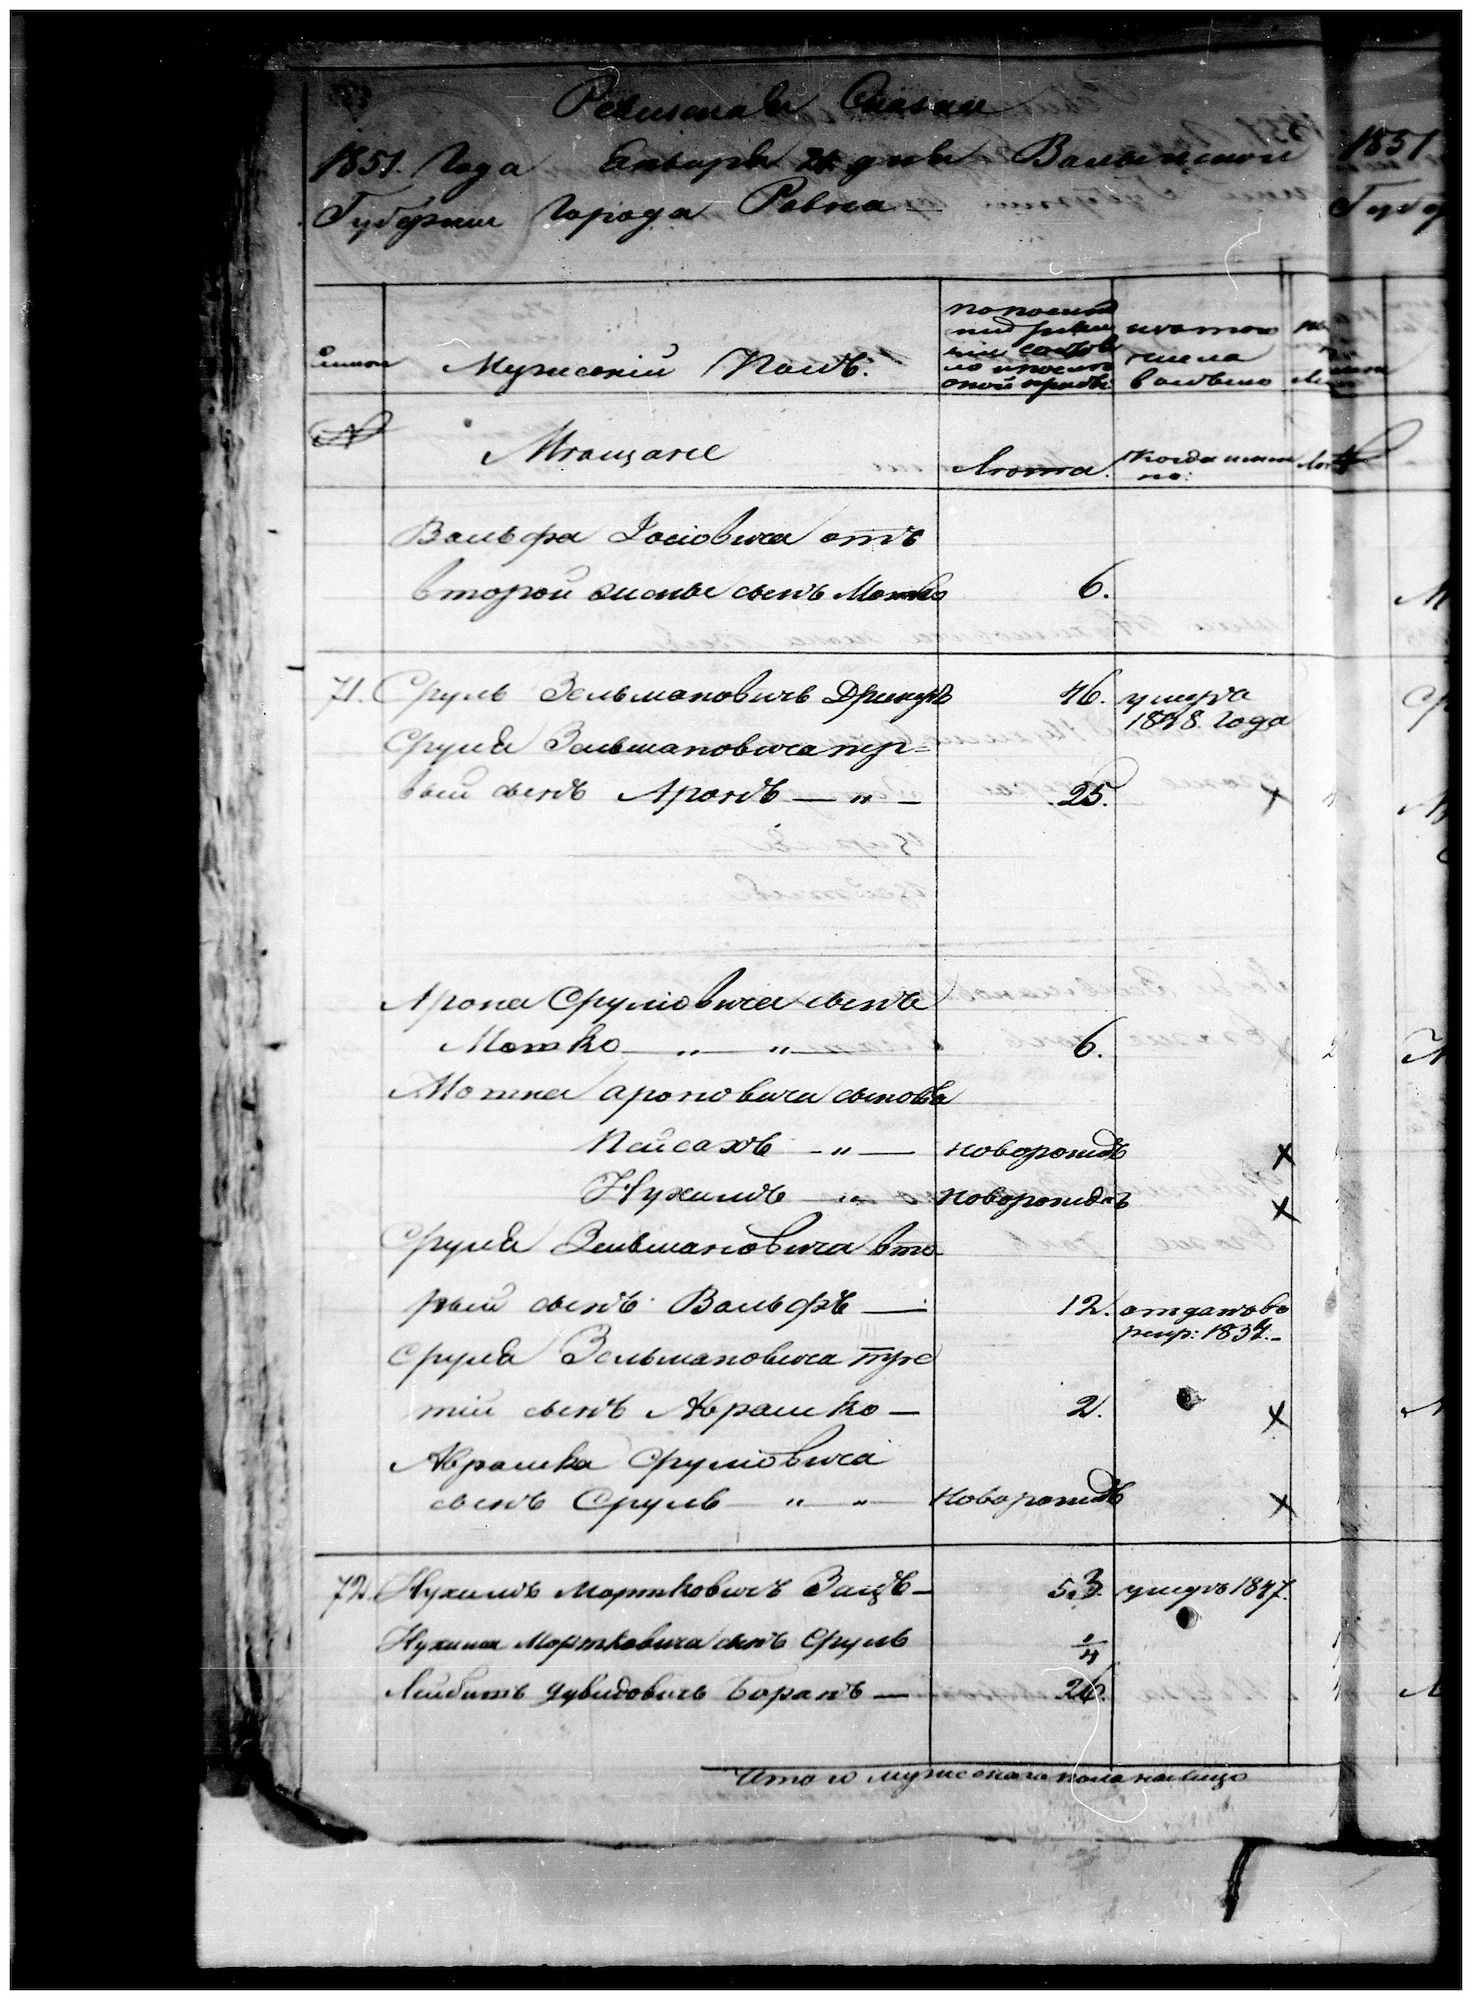 Ревизская Сказка
1851. Года Января дня Волынской
Губернии Города Ровна
Мужескій Полъ.
по последней
ревизіи состо
яло и после
оной прибы
изъ того
числа
выбыло
Мещане
Лета.
Когда имен
но:
Вольфа Іосіовича отъ
второй жены сынъ Мотко 6.
71. Сруль Зельмановичъ 46. умеръ
1848. года
Сруля Зельмановича пер=
вый сынъ Аронъ — „ — 25. х
Арона Сруліовича сынъ
Мотко — „ — „ — 6.
Мотка Ароновича сыновья
Пейсахъ — „ — новорожд х
Нухимъ — „ — новорожд х
Сруля Зельмановича вто
рый сынъ Вольфъ — 12. отданъ въ
рекр: 1837.
Сруля Зельмановича тре
тій сынъ Аврамко — 2. х
Аврамка Сруліовича
сынъ Сруль — „ — „ — новорожд х
72. Нухимъ Мортковичъ Зацъ — 53. умеръ 1847.
Нухима Мортковича сынъ Сруль 1/4
Лейбишъ Дувидовичъ Боранъ — 26.
Итого мужескаго пола налицо
1851